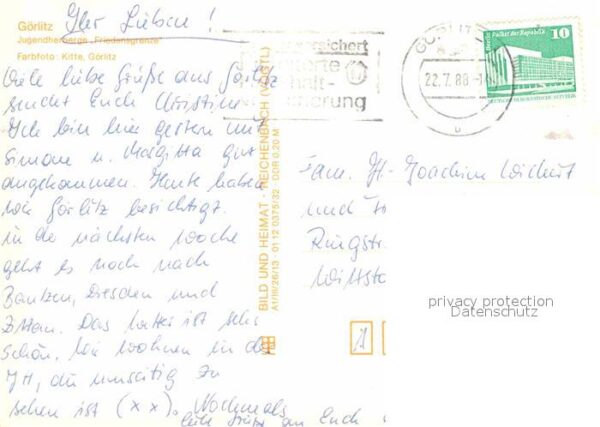 Görlitz
Jugendherberge „Friedensgrenze"
Farbfoto: Kitte, Görlitz
Ihr Lieben!
Viele liebe Grüße aus Görlitz
sendet Euch Christine
Ich bin hier gestern mit
Simone u. Margitta gut
angekommen. Heute haben
wir Görlitz besichtigt.
In der nächsten Woche
geht es noch nach
Bautzen, Dresden und
Zittau. Das Wetter ist sehr
schön. Wir wohnen in der
JH, die umseitig zu
sehen ist (xx). Nochmals
liebe Grüße an Euch
BILD UND HEIMAT · REICHENBACH (VOGTL)
A1/III/26/13 · 01 12 0375/32 DDR 0,20 M
22.7.88
Berlin Palast der Republik
10
DEUTSCHE DEMOKRATISCHE REPUBLIK
Fam. H-Joachim
und
Ringstr.
Wittsto
privacy protection
Datenschutz